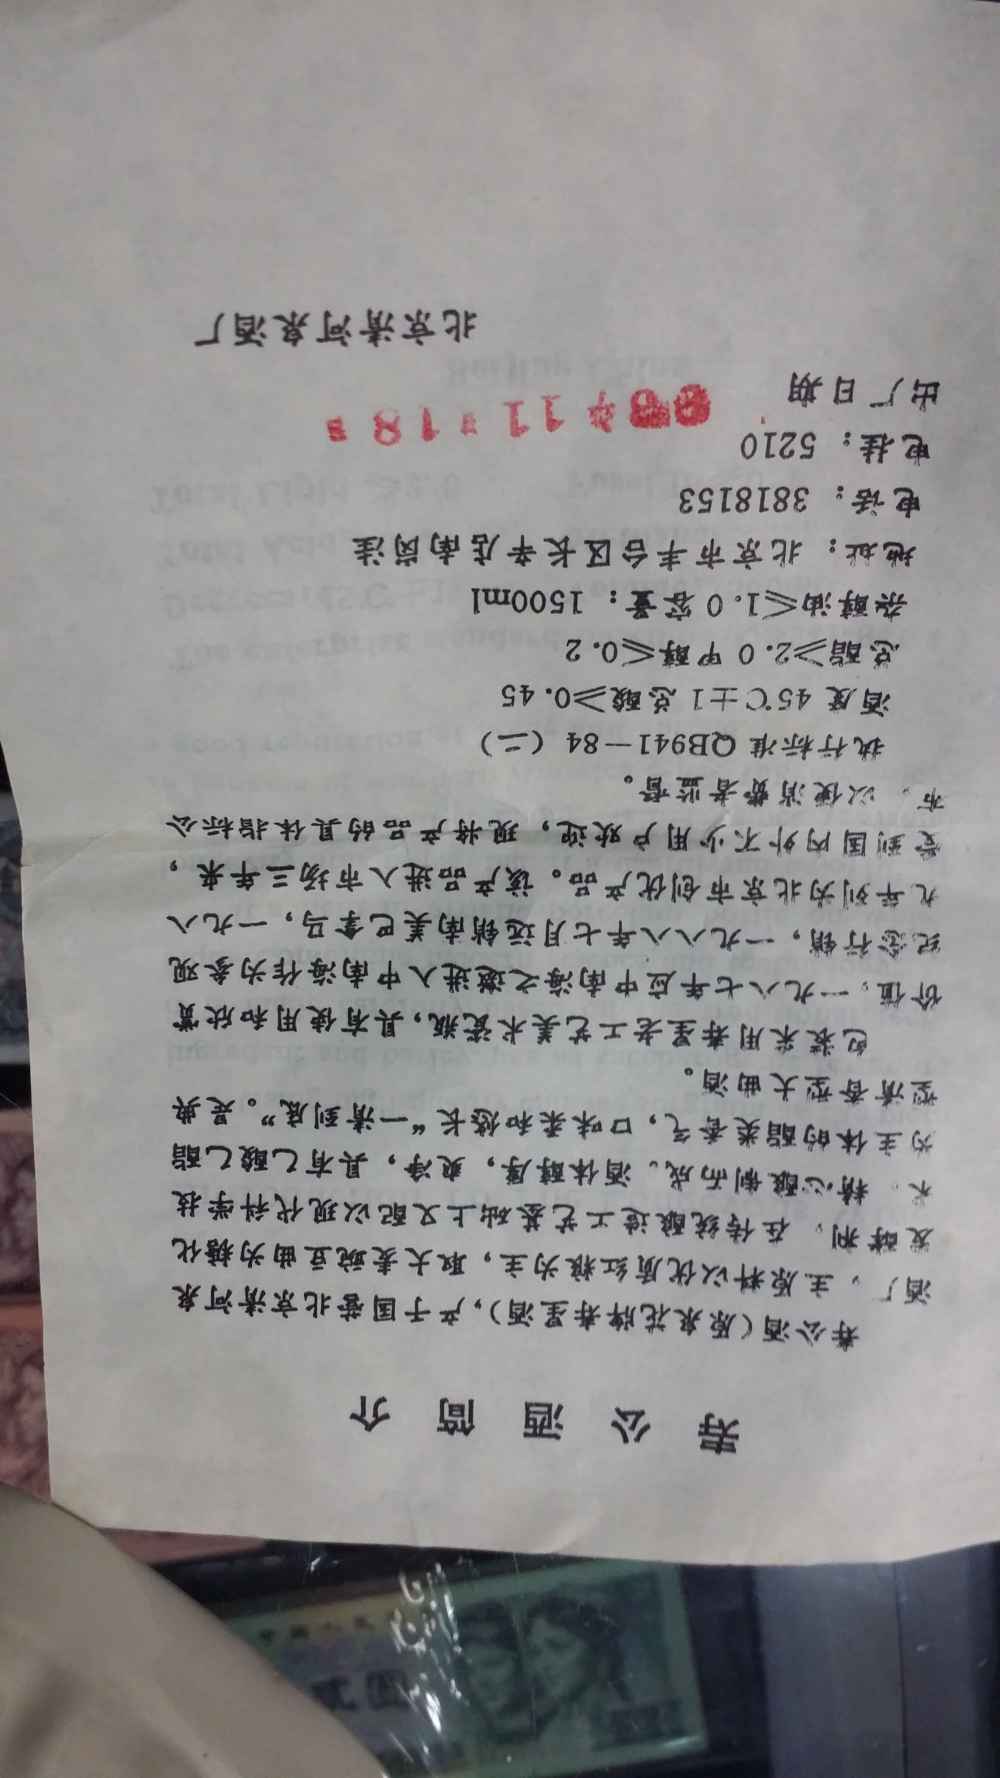 寿公酒简介
寿公酒(原泉花牌寿星酒),产于国营北京清河泉
酒厂,主原料以优质红粮为主,取大麦豌豆曲为糖化
发酵剂,在传统酿造工艺基础上又配以现代科学技
术,精心酿制而成。酒体醇厚,爽净,具有乙酸乙酯
为主体的酯类香气,口味柔和悠长“一清到底”。是典
型清香型大曲酒。
包装采用寿星老工艺美术瓷瓶,具有使用和欣赏
价值,一九八七年应中南海之邀进入中南海作为参观
纪念行销,一九八八年七月远销南美巴拿马,一九八
九年列为北京市创优产品。该产品进入市场三年来,
受到国内外不少用户欢迎,现将产品的具体指标公
布,以便消费者监督。
执行标准 QB941—84(二)
酒度 45℃±1 总酸≥0.45
总酯≥2.0 甲醇≤0.2
杂醇油≤1.0 容量:1500ml
地址:北京市丰台区长辛店南岗洼
电话:3818153
电挂:5210
出厂日期
11 18
北京清河泉酒厂